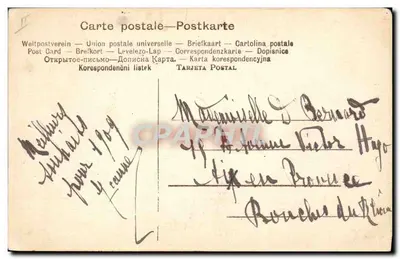 Carte postale—Postkarte
Weltpostverein — Union postale universelle — Briefkaart — Cartolina postale
Post Card — Brefkort — Levelezo-Lap — Correspondenzkarte — Dopisnice
Открытое-письмо—Дописна Карта. — Karta korespondencyjna
Korespondenční lístek TARJETA POSTAL
Meilleurs
souhaits
pour 1909
Mademoiselle d Bernard
15 Avenue Victor Hugo
Aix en Provence
Bouches du Rhône